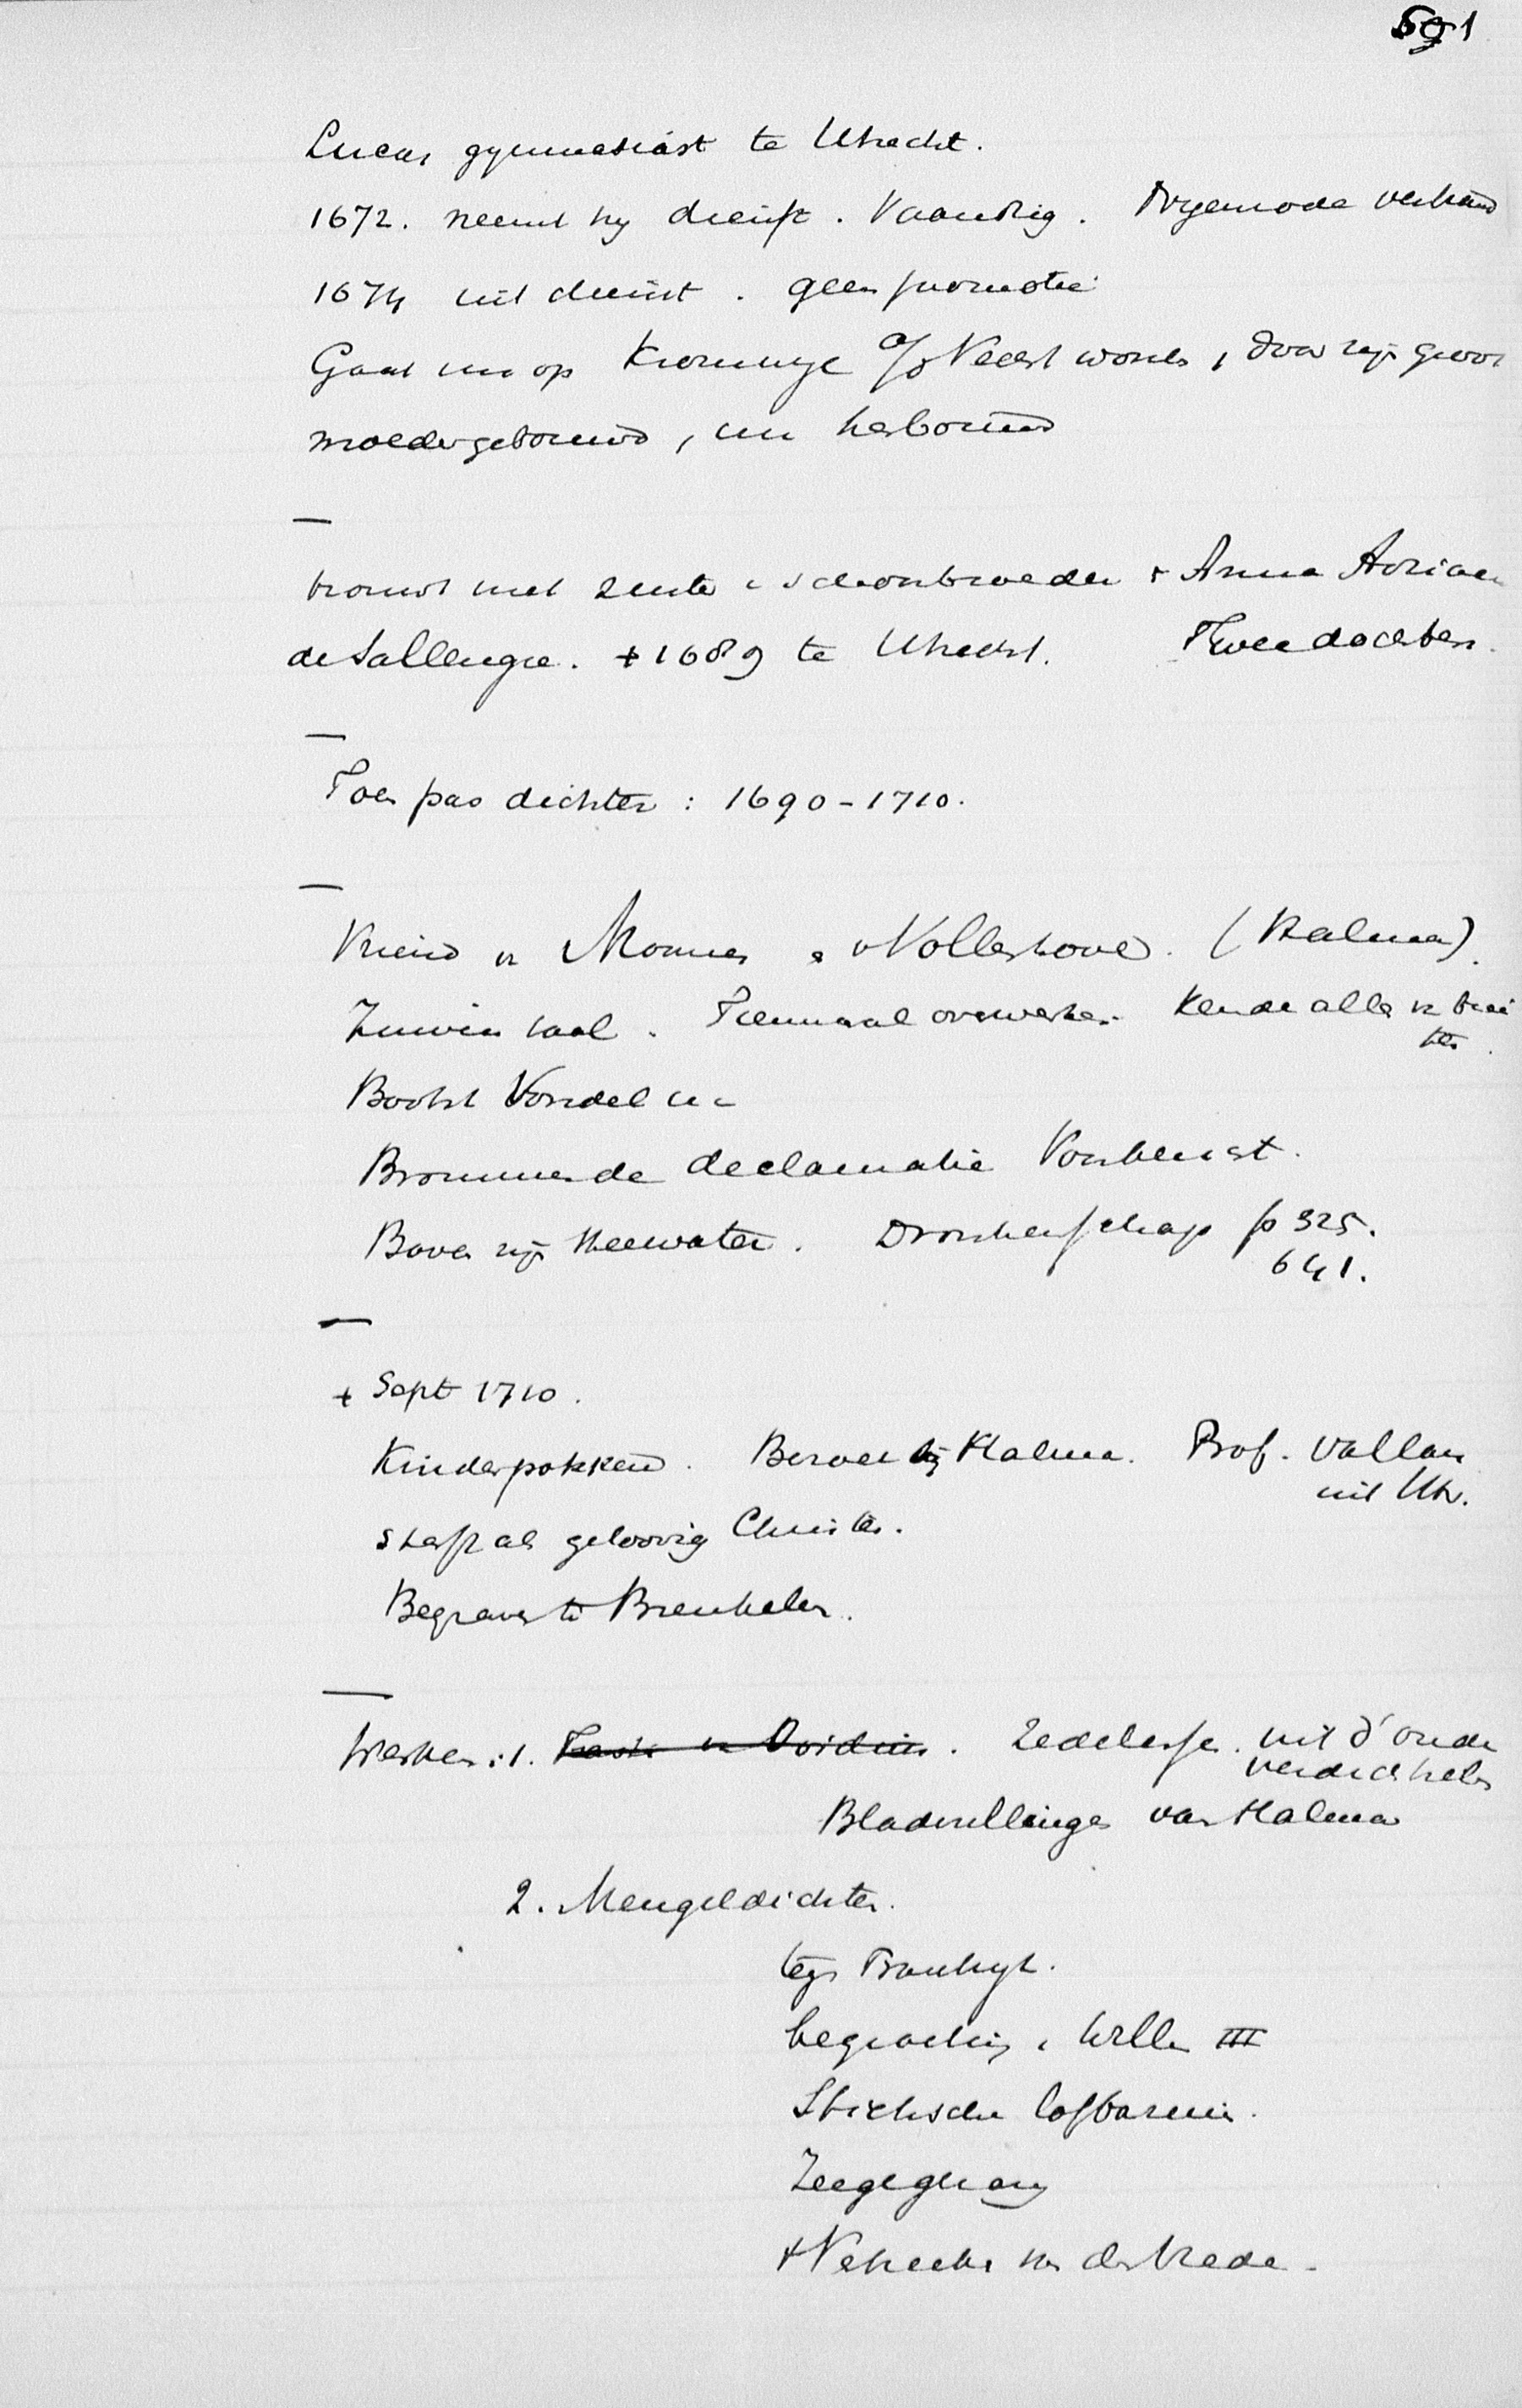 591
Lucas gymnasiast te Utrecht.
1672. neemt hij dienst. Vaandrig. verband
1674 uit dienst. geen promotie
Gaat nu op Kronenburg a/d Vecht wonen, door zijn groot
moeder gebouwd, nu herbouwd
—
trouwt met zuster v schoonbroeder + Anna Adriana
de Sallengre. + 1689 te Utrecht. Twee dochters.
—
Toen pas dichter: 1690-1710.
—
Vriend v Moonen & Vollenhove. (Halma).
Zuivere taal. Tienmaal overwerken. Kende alle
Bootst Vondel na
Brommende declamatie Voorkeur st.
Boven zijn theewater. Dronkenschap p 325.
641.
—
+ Sept 1710.
Kinderpokken. Beroer bij Halma. Prof. Vallan
uit Utr.
sterft als geloovig Christen.
Begraven te Breukelen.
—
Werken: 1. Fasti v Ovidius. Zedelessen uit d'oude
verdichtselen
Bladvullingen van Halma
2. Mengeldichten.
tegen Frankrijk.
begraving v Willem III
Stichsche lofbazuin.
Zeegezang
+ Utrecht